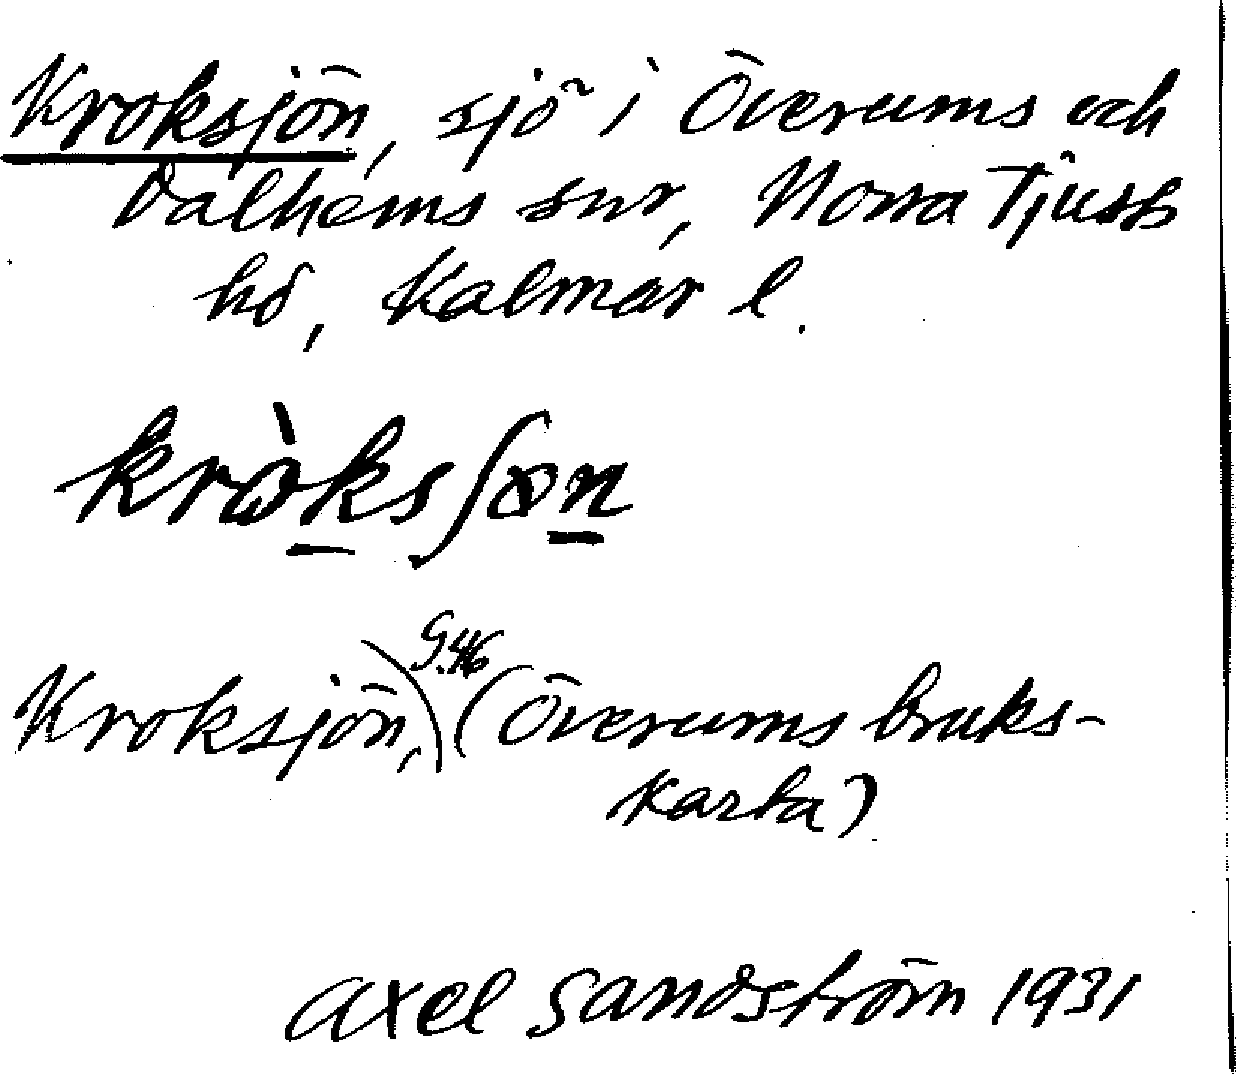 Kroksjön, sjö i Överums och
Dalhems snr, Norra Tjusts
hd, Kalmar l.
krò̱ksʃøn̲
G.46
Kroksjön, (Överums bruks-
karta)
Axel Sandström 1931